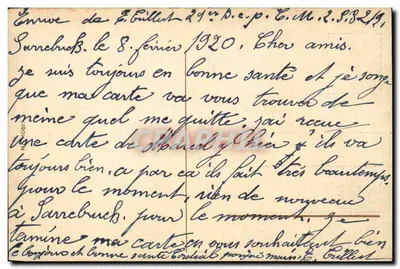 Envoie de E. Gillet 2 9er B.c.p. C.M. 2. S.P. 219,
Sarrebuck. le 8. février 1920. Cher amis.
je suis toujours en bonne santé et je songe
que ma carte va vous trouver de
même quel me quitte, j'ai recue
une carte de Marcel, hier il va
toujours bien, a par ca il fait très beautemps
pour le moment, rien de nouveau
à Sarrebuck, pour le moment. je
tamine ma carte en vous souhaitant bien
le bonjour et bonne sante Cordial poigne main. E. Gillet